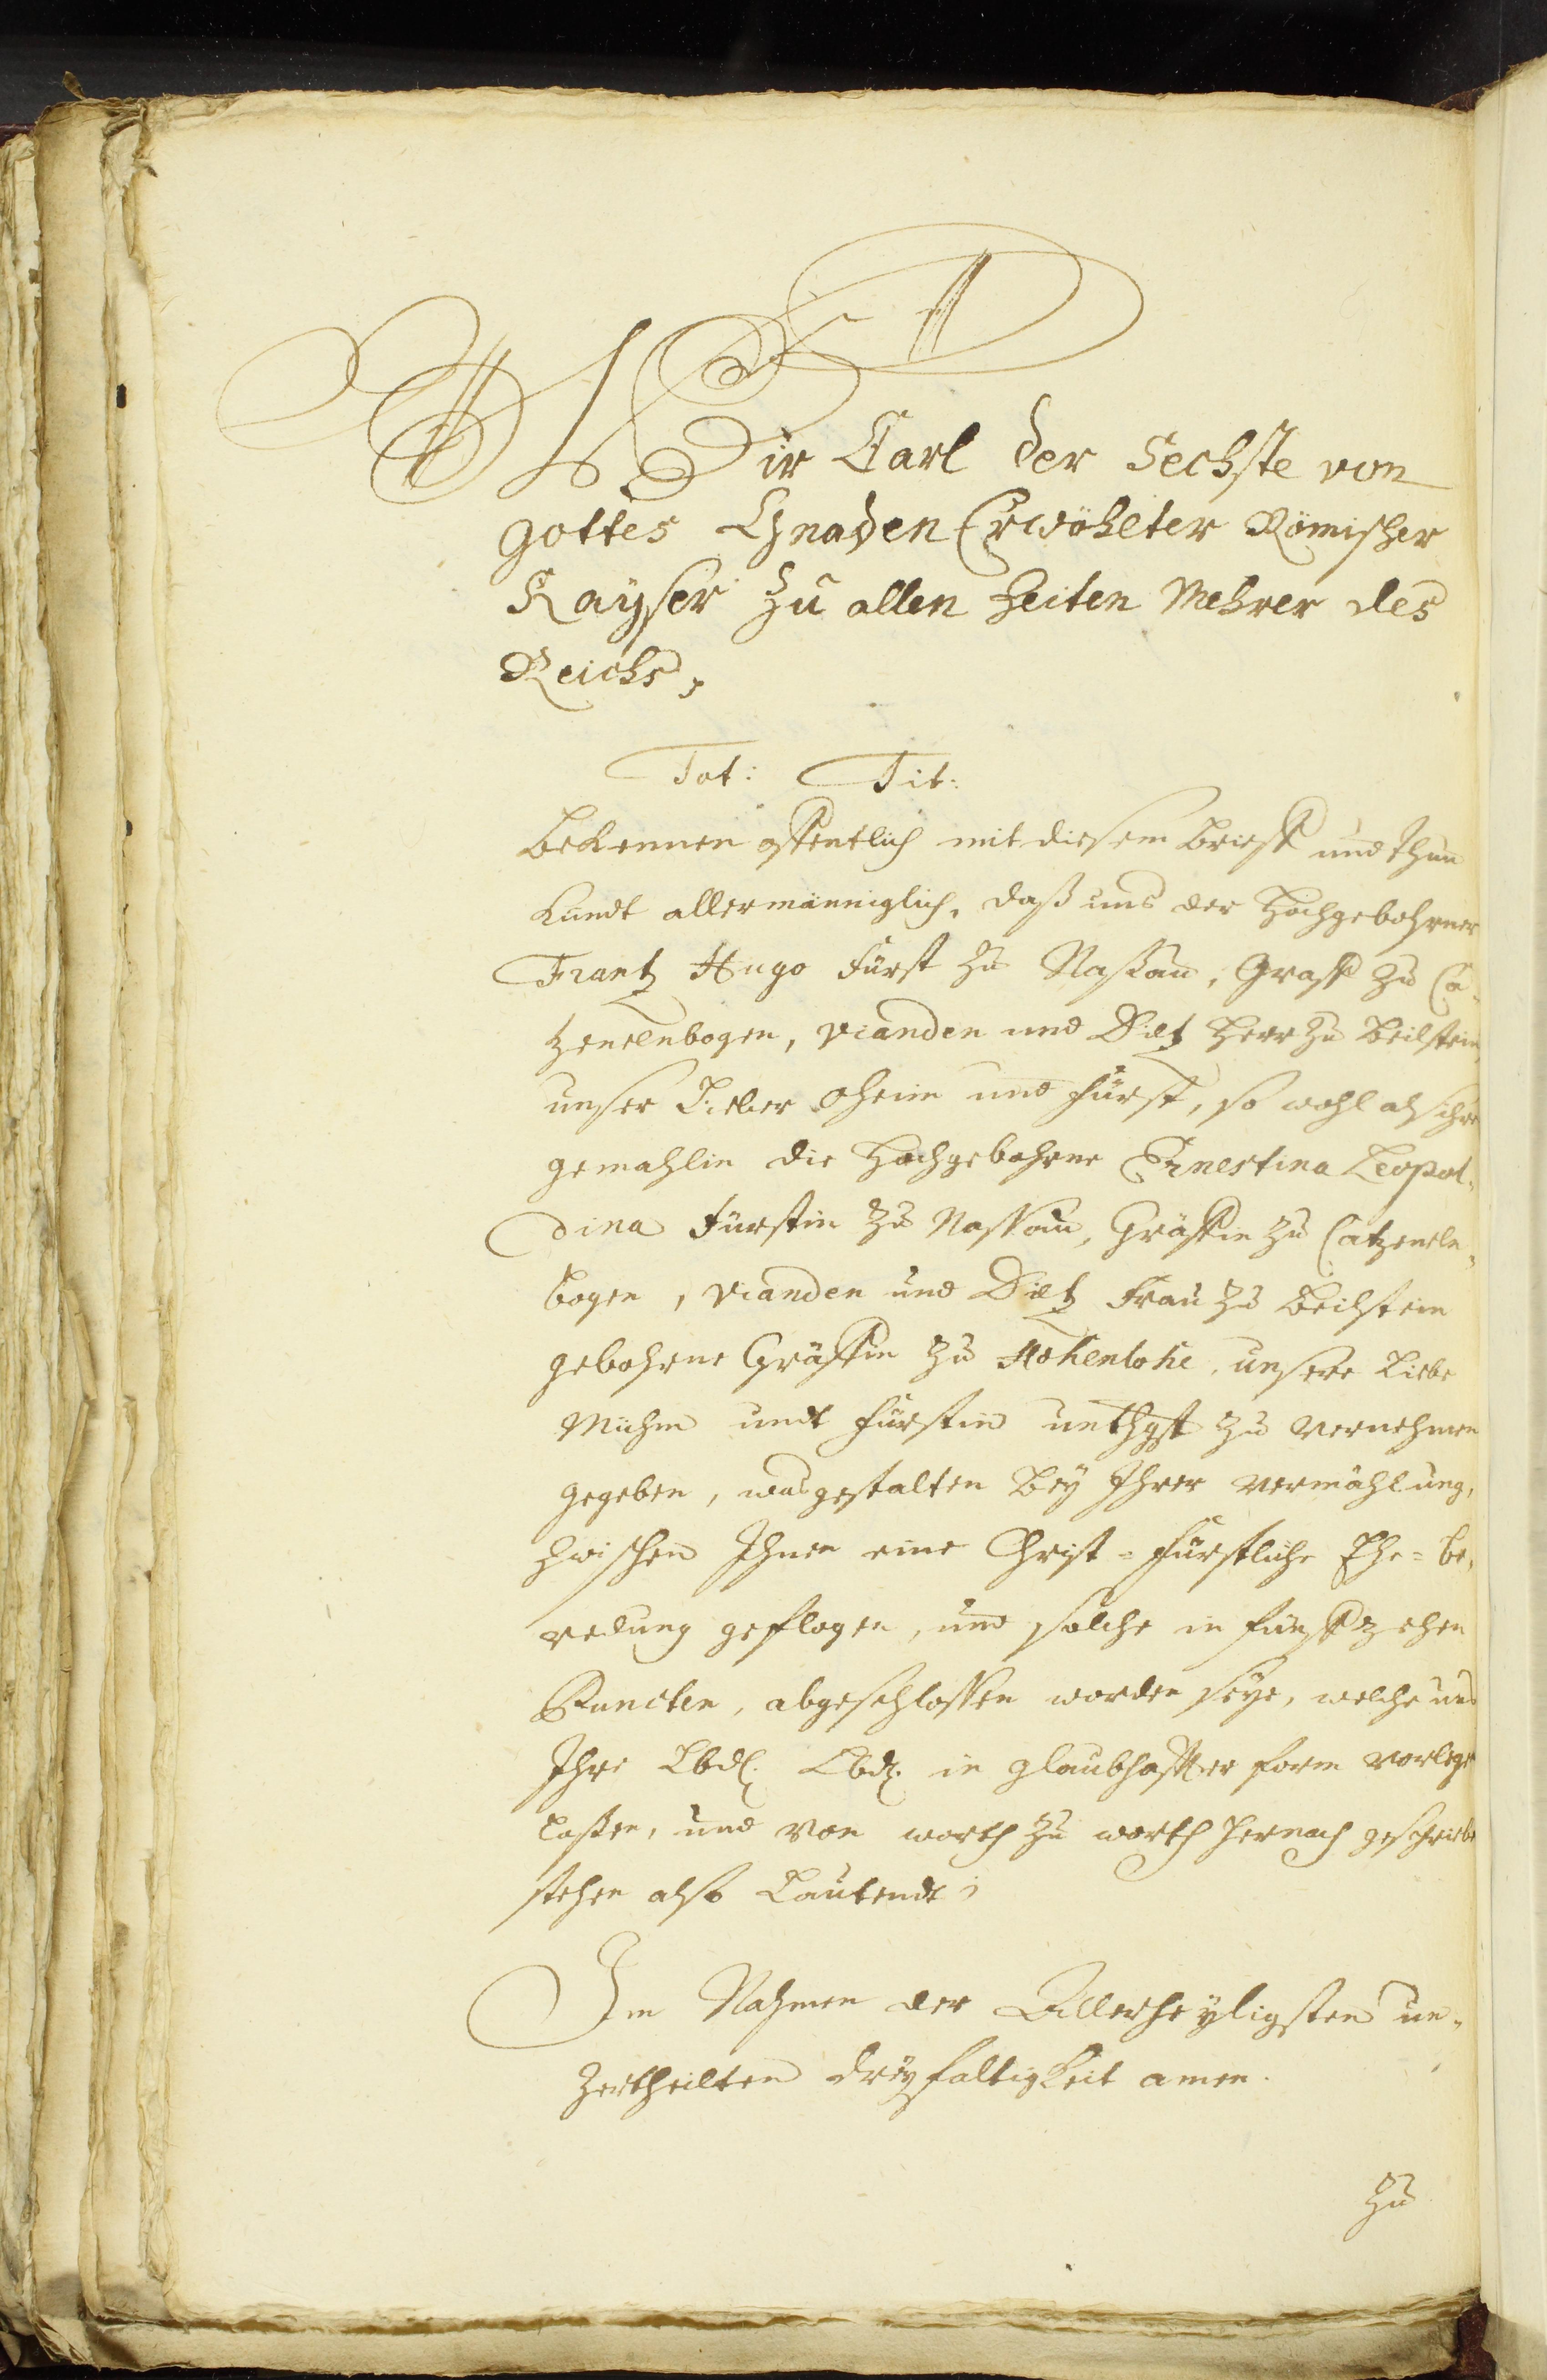 Wir Carl der Sechste von
gottes Gnaden Erwöhlter Römischer
Kayser Zu allen Zeiten Mehrer des
Reichs,
Tot: Tit:
Bekennen offentlich mit diesem Brieff und thun
kundt allermänniglich, daß uns der Hochgebohrner
Frantz Hugo Fürst zu Naßau, Graff zu Ca-
tzenelnbogen, Vianden und Dietz Herr zu Beilstein
unser Lieber Oheim und Fürst, so wohl als ihre
gemahlin die Hochgebohrne Ernestina Leopol-
dina Fürstin zu Nassau, Gräffin zu Catzeneln-
bogen, Vianden und Dietz Frau zu Beilstein
gebohrne Gräffin zu Hohenlohe, unsere Liebe
Muhm undt Fürstin unthgst zu vernehmen
gegeben, was gestalten bey Ihrer Vermählung,
zwischen Ihnen eine Christ-Fürstliche Ehe-be-
redung gepflogen, und solche in funffzehen
Puncten, abgeschlossen worden seye, welche uns
Ihre Lbdl. Lbdl. in glaubhaffter form vorlege
laßen, und von worth zu worth hernach geschriebe
stehen also Lautendt;
Im Nahmen der Allerheyligsten un-
zertheilten Dreyfaltigkeit amen.
Zu